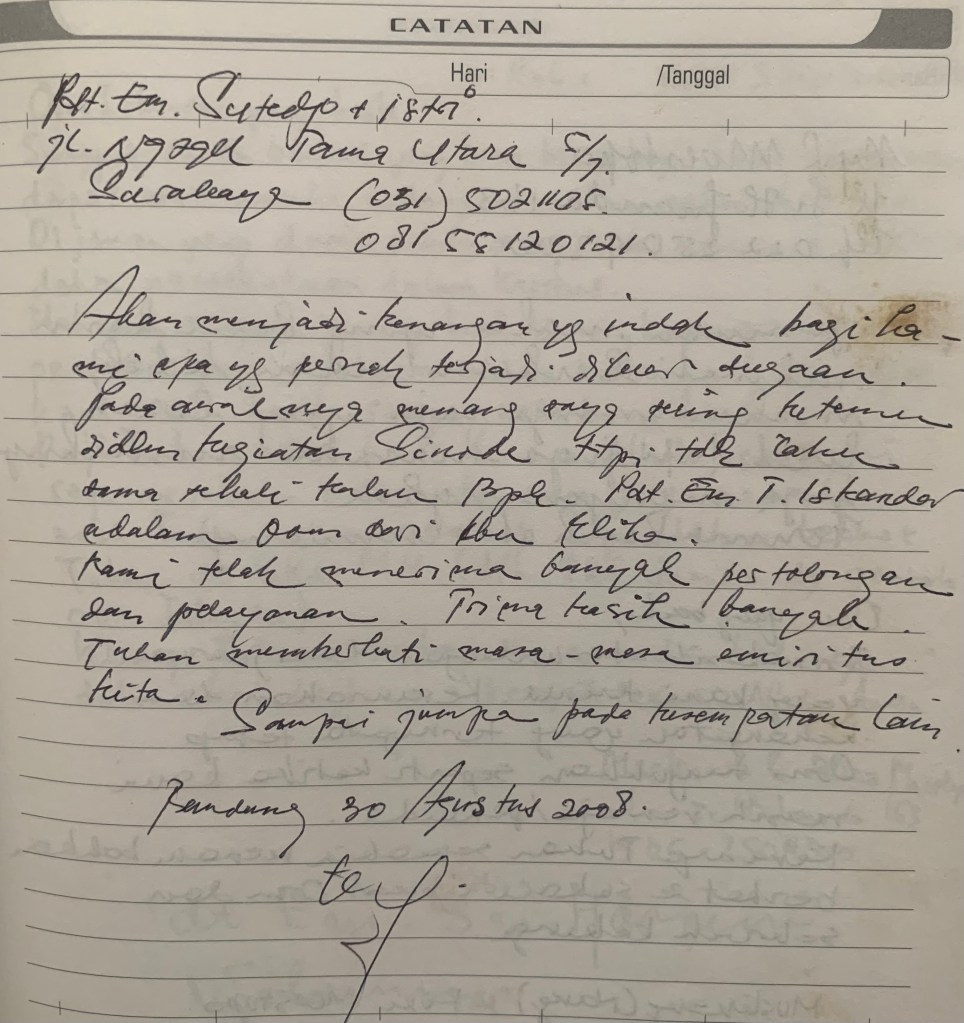 CATATAN
Hari /Tanggal
Pdt. Em. Sutedjo + istri.
jl. Ngagel Tama Utara 5/7.
Surabaya (031) 5021105.
08155120121.
Akan menjadi kenangan yg indah bagi ka-
mi apa yg pernah terjadi diluar dugaan.
Pada awalnya memang saya sering ketemu
didlm kegiatan Sinode ttpi tdk tahu
sama sekali kalau Bpk. Pdt. Em. T. Iskandar
adalam oom dari Ibu Elika.
Kami telah menerima banyak pertolongan
dan pelayanan. Trima kasih banyak.
Tuhan memberkati masa-masa emiritus
kita.
Sampai jumpa pada kesempatan lain
Bandung 30 Agustus 2008.